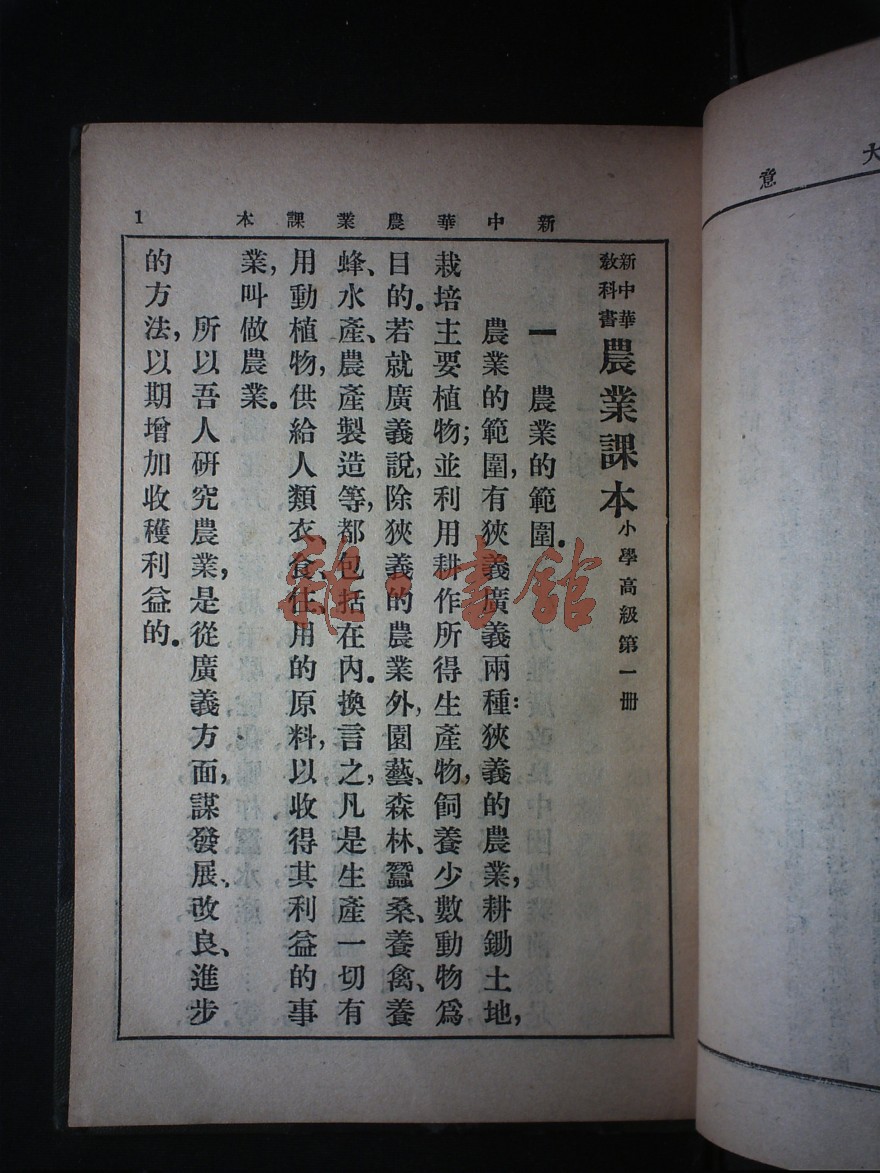 新中華農業課本
1
新中華
教科書
農業課本
小學高級第一冊
一 農業的範圍。
農業的範圍,有狹義廣義兩種:狹義的農業,耕鋤土地,
栽培主要植物;並利用耕作所得生產物,飼養少數動物爲
目的。若就廣義說,除狹義的農業外,園藝、森林、蠶桑、養禽、養
蜂、水產、農產製造等,都包括在內。換言之,凡是生產一切有
用動植物,供給人類衣、食、住、用的原料,以收得其利益的事
業,叫做農業。
所以吾人研究農業,是從廣義方面,謀發展、改良、進步
的方法,以期增加收穫利益的。
大
意
書館